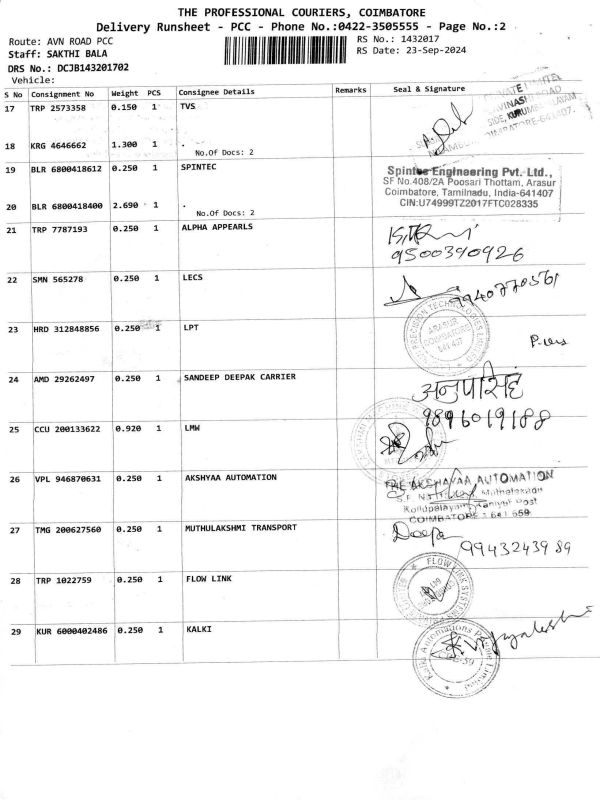 THE PROFESSIONAL COURIERS, COIMBATORE
Delivery Runsheet - PCC - Phone No.:0422-3505555 - Page No.:2
Route: AVN ROAD PCC
RS No.: 1432017
Staff: SAKTHI BALA
RS Date: 23-Sep-2024
DRS No.: DCJB143201702
Vehicle:
S No Consignment No Weight PCS Consignee Details Remarks Seal & Signature
17 TRP 2573358 0.150 1 TVS
18 KRG 4646662 1.300 1 .
No.Of Docs: 2
19 BLR 6800418612 0.250 1 SPINTEC
Engineering Pvt. Ltd.,
SF No.408/2A Poosari Thottam, Arasur
Coimbatore, Tamilnadu, India-641407
CIN:U74999TZ2017FTC028335
20 BLR 6800418400 2.690 1 .
No.Of Docs: 2
21 TRP 7787193 0.250 1 ALPHA APPEARLS
9500390926
22 SMN 565278 0.250 1 LECS
9940770561
23 HRD 312848856 0.250 1 LPT
ARASUR
COIMBATORE
24 AMD 29262497 0.250 1 SANDEEP DEEPAK CARRIER
अनुपसिंह
9896019188
25 CCU 200133622 0.920 1 LMW
26 VPL 946870631 0.250 1 AKSHYAA AUTOMATION
AKSHAYAA AUTOMATION
COIMBATORE - 641 659
27 TMG 200627560 0.250 1 MUTHULAKSHMI TRANSPORT
Deepa
9943243989
28 TRP 1022759 0.250 1 FLOW LINK
FLOW LINK
29 KUR 6000402486 0.250 1 KALKI